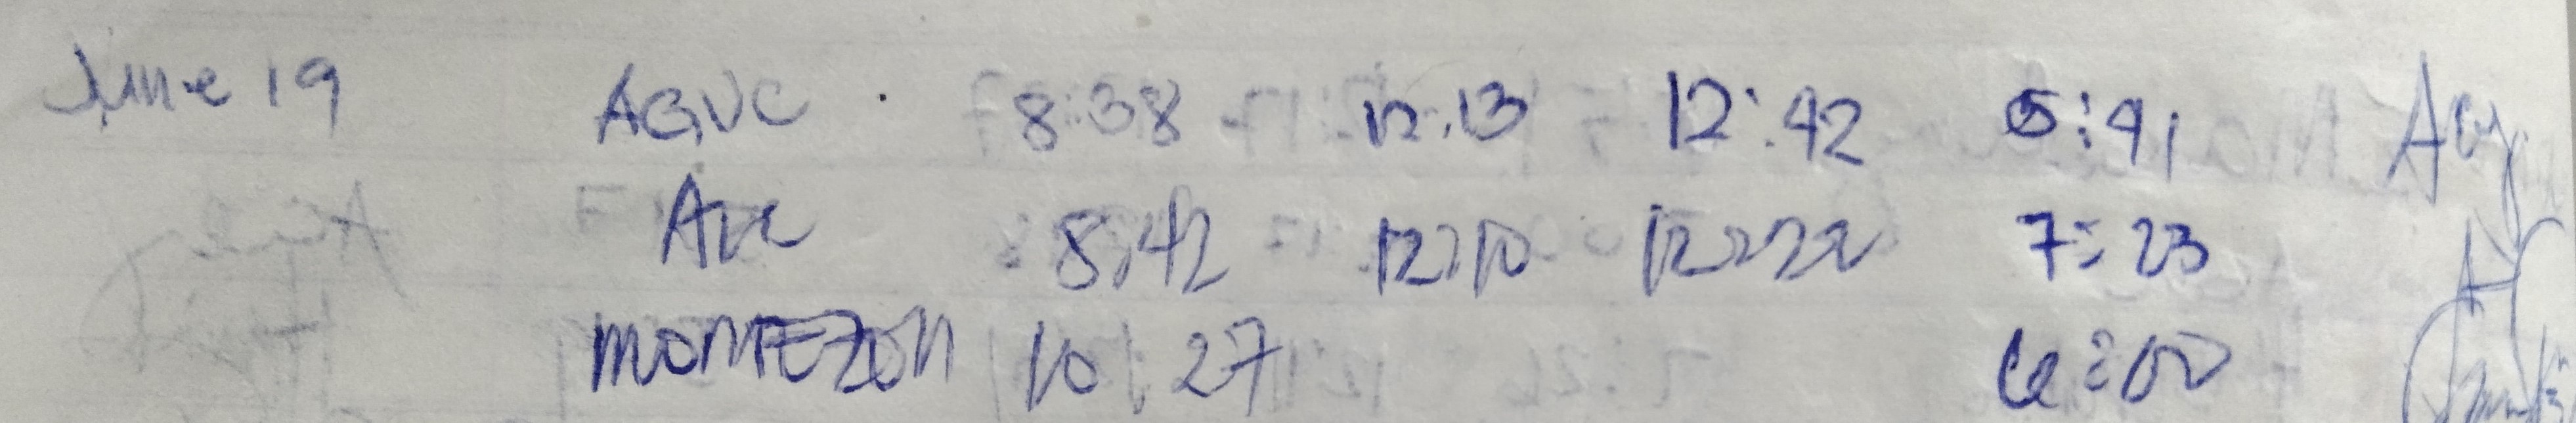 June 19 AGVC 8:38 12:13 12:42 5:41
8:42 12:10 12:22 7:23
MONTEZON 10:27 6:00